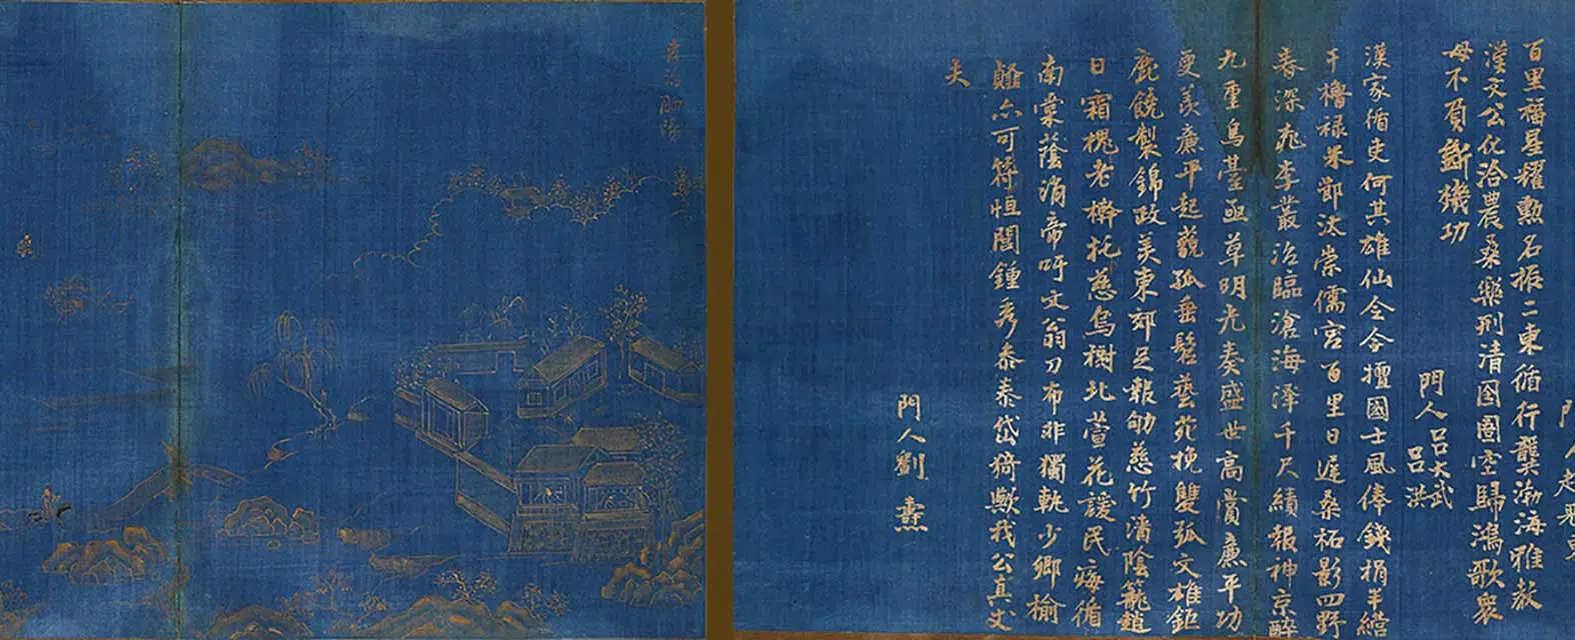 門人趙
百里福星耀勳名振二東循行龔渤海雅教
漢文公化洽農桑樂刑清囹圄空歸鴻歌衆
母不負斷機功
門人呂大武
呂洪
漢家循吏何其雄仙令今擅國士風俸錢捐半繕
干櫓祿米節汰崇儒宮百里日遲桑柘影四野
春深桃李叢治臨滄海澤千尺績報神京醉
九重烏臺亟草明光奏盛世高賞廉平功
更羨廉平起藐孤垂髫藝苑挽雙弧文雄鉅
鹿饒製錦政美東郊足報劬慈竹清陰籠趙
日霜槐老檜托慈烏樹北萱花護民瘼循
南棠蔭滿帝呼文翁刀布非獨軌少卿榆
亦可符恒閭鍾秀泰泰岱猗歟我公真丈
夫
門人劉燾